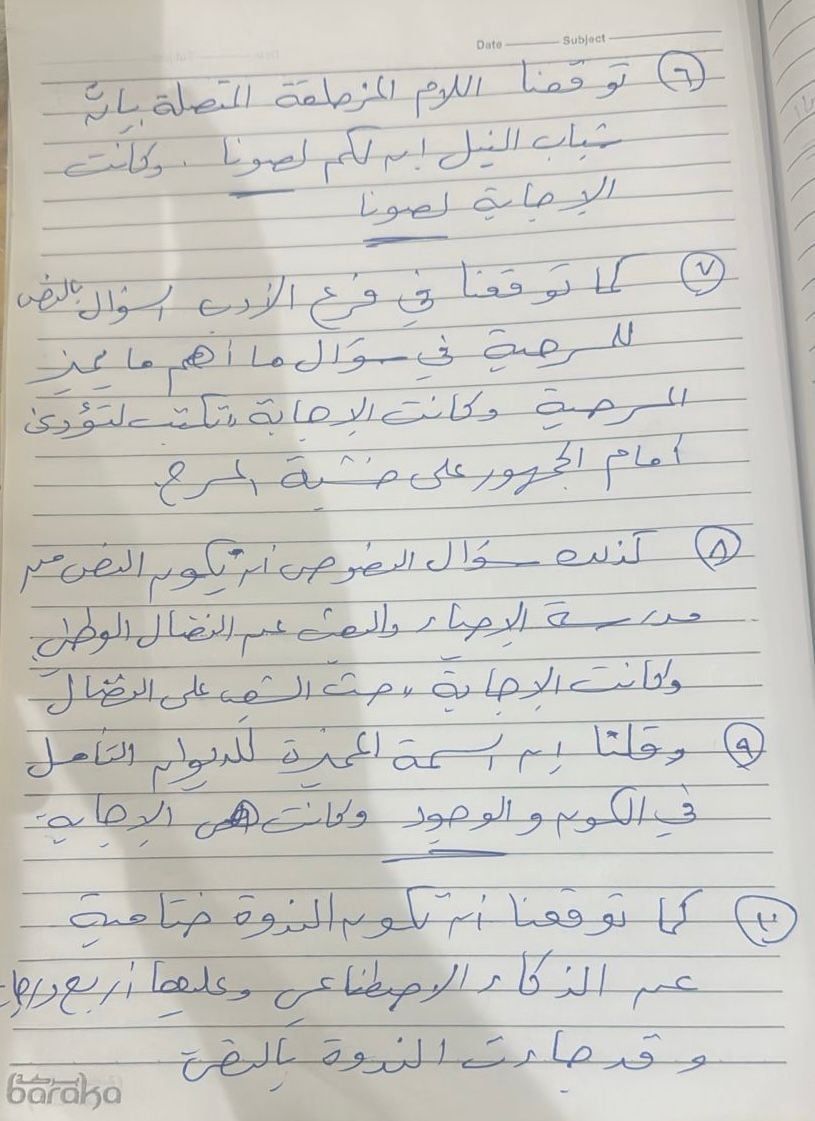 Date Subject
٦ توقعنا اللام المزحلقة المتصلة بإنّ
شباب النيل إن لكم لصونا . وكانت
الإجابة لصونا
٧ كما توقعنا في فرع الأدب سؤال بالنص
المسرحية في سؤال ما أهم ما يميز
المسرحية وكانت الإجابة " تكتب لتؤدى
أمام الجمهور على خشبة المسرح
٨ كذلك سؤال النصوص أن يكون النص من
مدرسة الإحياء والحث عن النضال الوطني
وكانت الإجابة " حث الشعب على النضال
٩ وقلنا إن السمة المميزة للديوان التأمل
في الكون والوجود وكانت هى الإجابة
١٠ كما توقعنا أن تكون الندوة ختامية
عن الذكاء الاصطناعي وعليها أربع درجات
وقد جاءت الندوة بالنص
baraka بركة